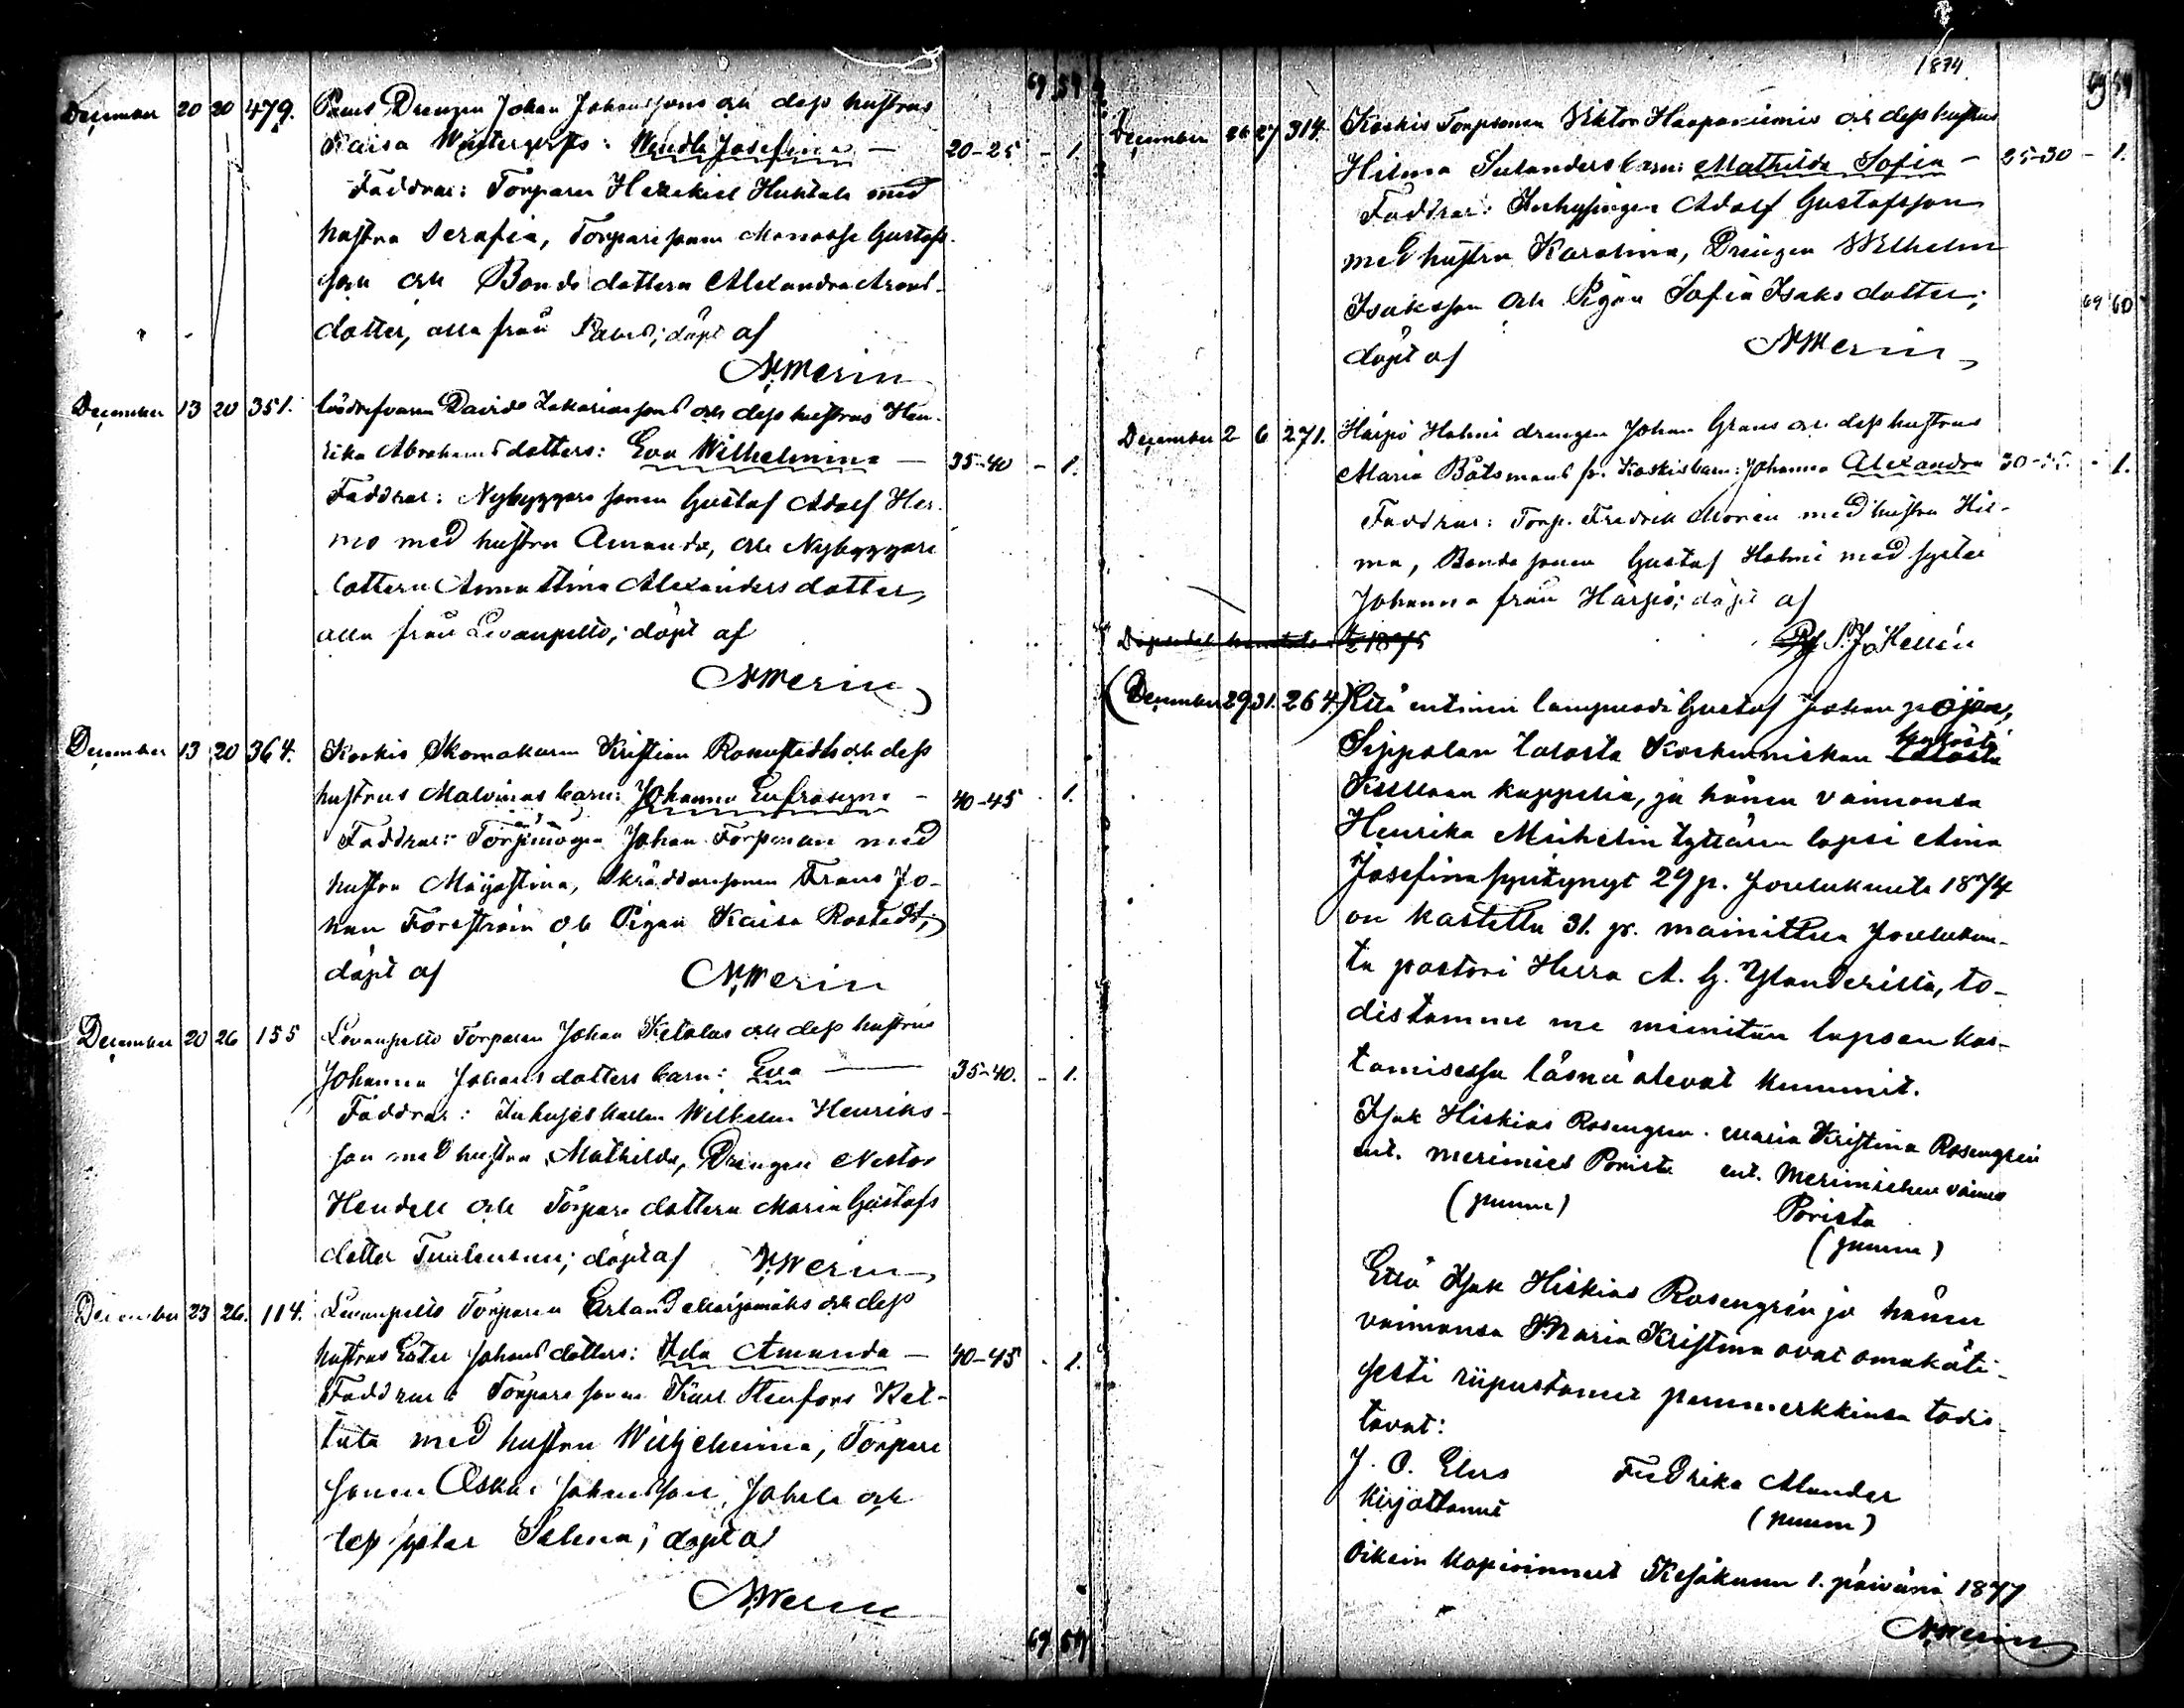 69 54
December 20 20 479. Drengen Johan Johanssons och dess hustrus
Kaisa : Wendla Josefina — 20-25 - 1.
Faddrar: Torparen Hezekiel Huhtala med
hustru Serafia, Torparesonen Manasse Gustafs-
son och Bondedottern Alexandra
dotter, alla från ; döpt af
N. Merin
December 13 20 351. Davids Zakariassons och dess hustrus Hen-
rika Abrahamsdotters: Eva Wilhelmina — 35-40 - 1.
Faddrar: Nybyggaresonen Gustaf Adolf Her-
mo med hustru Amanda, och Nybyggare
dottern Anna Stina Alexandersdotter,
alla från Levanpelto; döpt af
N. Merin
December 13 20 364. Koskis Skomakaren Kristian och dess
hustrus Malvinas barn: Johanna Eufrosyne - 40-45 - 1.
Faddrar: Johan Torpman med
hustru Majastina, Skräddaresonen Frans Jo-
han Forsström och Pigan Kaisa Rostedt;
döpt af N. Merin
December 20 26 155 Levanpelto Torparen Johan Ketolas och dess hustrus
Johanna Johansdotters barn: Eva — 35-40. - 1.
Faddrar: Wilhelm Henriks-
son med hustru Mathilda, Drengen Nestor
Hendell och Torparedottern Maria Gustafs
dotter ; döpt af N. Merin
December 23 26. 114. Levanpelto Torparen Erland Marjamäks och dess
hustrus Ester Johansdotters: Ida Amanda — 40-45 - 1.
Faddrar: Torparesonen Karl Stenfors
med hustru Wilhelmina, Torpare
sonen Oskar Johansson, och
dess syster Selma; döpt af
N. Merin
69 54
1874
69 54
December 26 27 314. Koskis Torpsonen Viktor Haapaniemis och dess hustrus
Hilma Selanders barn: Mathilda Sofia — 25-30 - 1.
Faddrar: Inhysingen Adolf Gustafsson
med hustru Karolina, Drengen Wilhelm
Isaksson och Pigan Sofia Isaksdotter; 69 60
döpt af N. Merin
December 2 6 271. Harjo Holmi drengen Johan Grans och dess hustrus
Maria Båtsmans fr. Koskis barn: Johanna Alexandra - 1.
Faddrar: Torp. Fredrik Morin med hustru Hil-
ma, Bondesonen Gustaf Holmi med syster
Johanna från Harjo; döpt af
1875 S. J. Hellén
(December 29 31. 264.) Että entinen lampuodi Gustaf Johan
Sippolan talosta Koskenniskan
Kiukaan kappelia, ja hänen vaimonsa
Henrika tyttären lapsi Aina
Josefina syntynyt 29 p. Joulukuuta 1874
on kastettu 31. p. mainittua Jouluku-
ta pastori Herra A. G. Ylanderilta, to-
distamme me mainitun lapsen kas-
tamisessa läsnä olevat kummit.
Isak Hiskias Rosengren. Maria Kristina Rosengren
ent. merimies Porista ent. Merimiehen vaimo
(puum) Porista
(puum)
Että Isak Hiskias Rosengrén ja hänen
vaimonsa Maria Kristina ovat omakäti-
sesti riipustaneet puumerkkinsä todis-
tavat:
J. O. Elers Fredrika Alander
kirjottanut (puum)
Oikein kopioinnut Kesäkuun 1. päivänä 1877
N. Merin